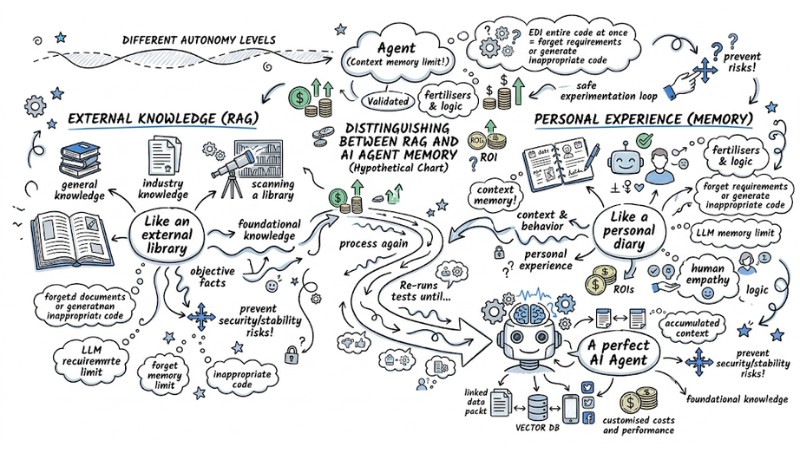 DIFFERENT AUTONOMY LEVELS
Agent
(Context memory limit!)
EDI entire code at once
= forget requirements
or generate
inappropriate code
prevent
risks!
Validated
fertilisers
& logic
safe
experimentation loop
EXTERNAL KNOWLEDGE (RAG)
DISTTINGUISHING
BETWEEN RAG AND
AI AGENT MEMORY
(Hypothetical Chart)
ROI
ROI
PERSONAL EXPERIENCE (MEMORY)
general
knowledge
industry
knowledge
scanning
a library
Like an
external
library
foundational
knowledge
objective
facts
prevent
security/stability
risks!
forgetd documents
or generatnan
inappropriatı code
LLM
recuiremwrte
limit
forget
memory
limit
inappropriate
code
process again
Re-runs
tests until...
context
memory!
date
context &
behavior
personal
experience
Like a
personal
diary
ROIs
fertilisers
& logic
forget requirements
or generate
inappropriate code
LLM memory limit
human
empathy
logic
accumulated
context
A perfect
AI Agent
prevent
security/stability
risks!
foundational knowledge
linked
data
packt
VECTOR DB
customised costs
and performance